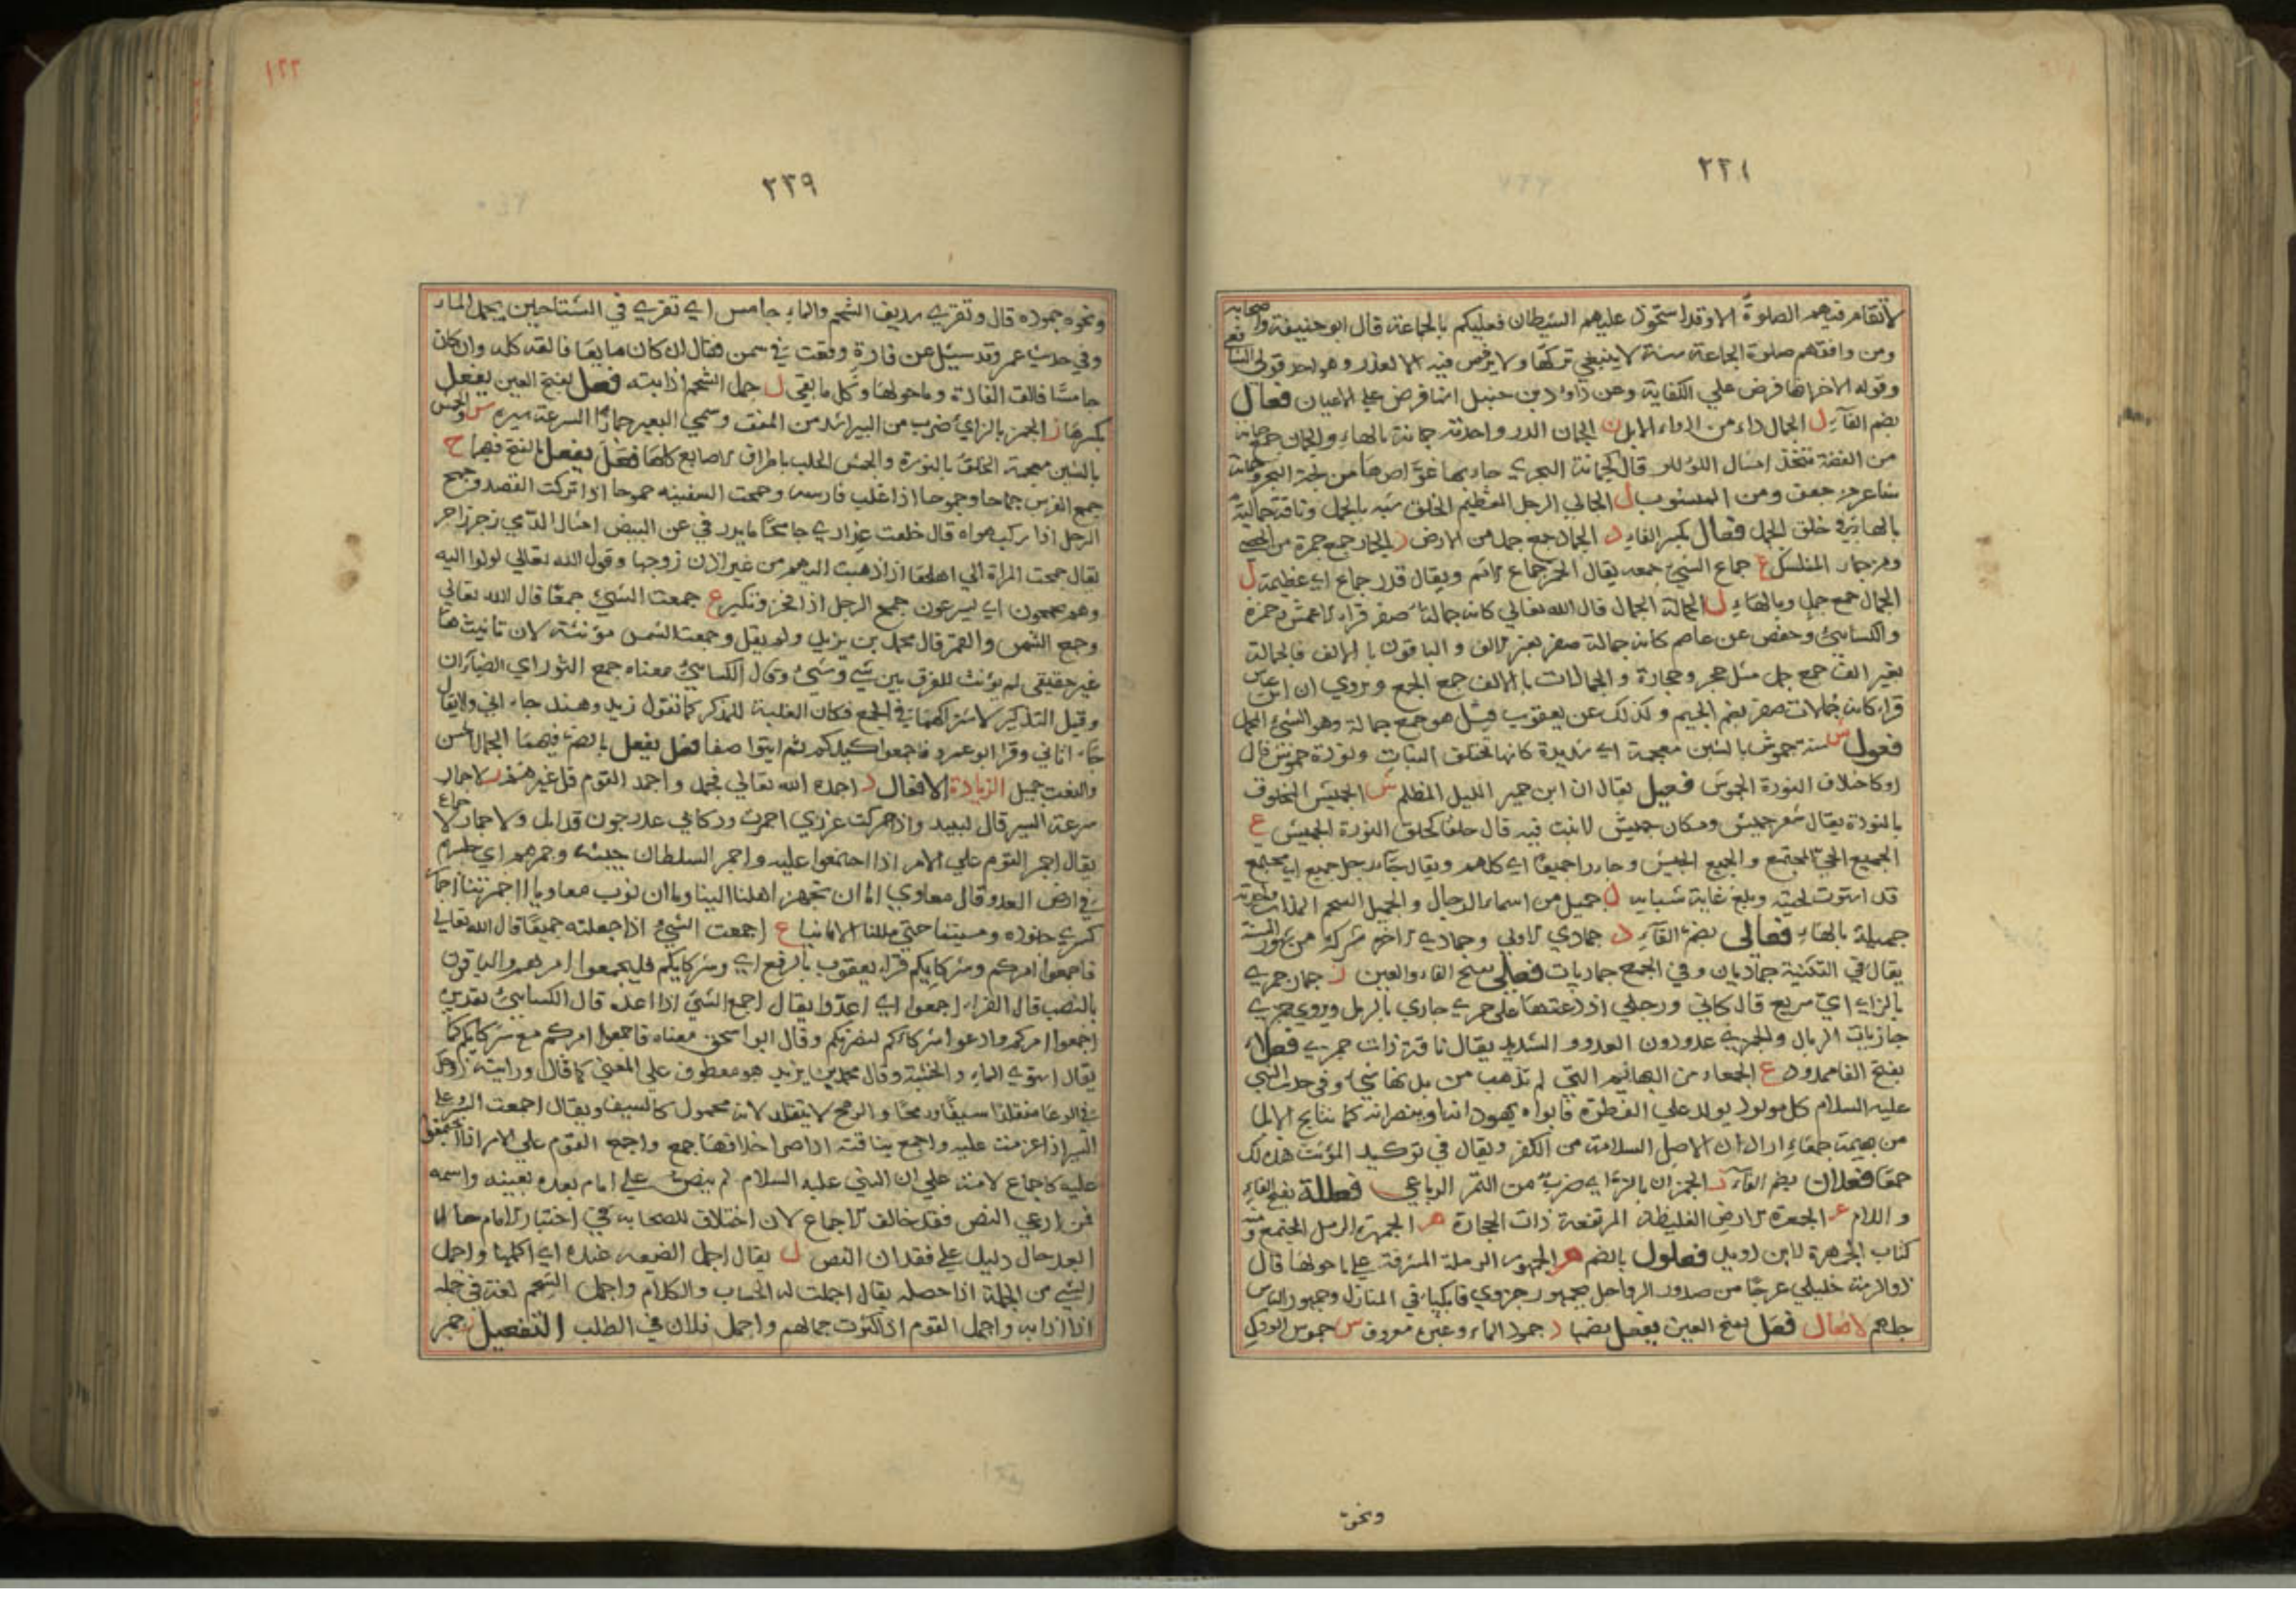 ٢٢٨
لا تقام فيهم الصلوة الا وقد استحوذ عليهم الشيطان فعليكم بالجماعة قال ابو حنيفة واصحابه
ومن وافقهم صلوة الجماعة سنة لا ينبغي تركها ولا يرخص فيه الا لعذر وهو احد قولي الشافعي
وقوله الاخر انها فرض علي الكفاية وعن داود بن حنبل انها فرض علي الاعيان فعال
بضم الفاء ل الجمال داء من ادواء الابل ن الجمان الدر واحدته جمانة بالهاء والجمان جمع جمانة
من الفضة تتخذ امثال اللؤلؤ قال كجمانة البحري جاء بها غواصها من لجة البحر وجمانة
شاعر جعفي ومن المنسوب ل الجمالي الرجل العظيم الخلق شبه بالجمل وناقة جمالية
بالهاء في خلق الجمل فعال بكسر الفاء د الجماد جمع جمد من الارض ر الجمار جمع جمرة من الحصى
ومن جمار المناسك ع جماع الشيء جمعه يقال الخمر جماع الاثم ويقال قدر جماع اي عظيمة ل
الجمال جمع جمل وبالهاء ل الجمالة الجمال قال الله تعالي كانه جمالة صفر قراء الاعمش وحمزة
والكسائي وحفص عن عاصم كانه جمالة صفر بغير الف والباقون بالالف فالجمالة
بغير الف جمع جمل مثل حجر وحجارة والجمالات بالالف جمع الجمع ويروي ان ابن عباس
قراء كانه جمالات صفر بضم الجيم وكذلك عن يعقوب قيل هو جمع جمالة وهو الشيء المجمل
فعول ش سنة جموش بالشين معجمة اي شديدة كانها تحتلق النبات ونورة جموش قال
او كاحتلاق النورة الجموش فعيل يقال ان ابن جمير الليل المظلم ش الجميش المحلوق
بالنورة يقال شعر جميش ومكان جميش لا نبت فيه قال حلقا كحلق النورة الجميش ع
الجميع الحي المجتمع والجميع الجيش وجاءوا جميعا اي كلهم ويقال رجل جميع اي مجتمع
قد استوت لحيته وبلغ غاية شبابه ل جميل من اسماء الرجال والجميل الشحم المذاب
جميلة بالهاء فعالى بضم الفاء د جمادي الاولي وجمادي الاخرة شركة من شهور السنة
يقال في التثنية جماديان وفي الجمع جماديات فعلى بفتح الفاء والعين ز حمار جمزي
بالزاي اي سريع قال كاني ورحلي اذا رعتها علي جمزي جازي بالرمل ويروي جمزي
جازيات الرمال والجمزي عدو دون العدو الشديد يقال ناقة ذات جمزي فعلاء
بفتح الفاء ممدود ع الجمعاء من البهائم التي لم تذهب من بدنها شيء وفي حديث النبي
عليه السلام كل مولود يولد علي الفطرة فابواه يهودانه وينصرانه كما تناتج الابل
من بهيمة جمعاء اراد ان الاصل السلامة من الكفر ويقال في توكيد المؤنث هذه لك
جمعا فعلان بضم الفاء ز الجمزان بالزاي ضرب من التمر الرباعي فعللة بفتح الفاء
واللام عر الجمعرة الارض الغليظة المرتفعة ذات الحجارة هر الجمهرة الرمل المجتمع ومنه
كتاب الجمهرة لابن دريد فعلول بالضم هر الجمهور الرملة المشرفة علي ما حولها قال
ذو الرمة خليلي عوجا من صدور الرواحل بجمهور حزوي فابكيا في المنازل وجمهور الناس
جلهم الافعال فعل بفتح العين يفعل بضمها د جمود الماء وغيره معروف س جموس الودك
ونحوه
١٢٢
٢٢٩
ونحوه جموده قال وتقري سديف الشحم والماء جامس اي تقري في الشتا حين يجمد الماء
وفي حديث عمر وقد سئل عن فارة وقعت في سمن فقال ان كان مايعا فالقه كله وان كان
جامسا فالق الفارة وما حولها وكل ما بقي ل جمل الشحم اذابته فعل بفتح العين يفعل
بكسرها ز الجمز بالزاي ضرب من السير اشد من العنق وسمي البعير جمازا لسرعة سيره ش والجمش
بالشين معجمة الحلق بالنورة والجمش الحلب باطراف الاصابع كلها فعل يفعل بالفتح فيهما ح
جمح الفرس جماحا وجموحا اذا غلب فارسه وجمحت السفينه جموحا اذا تركت القصد وجمح
الرجل اذا ركب هواه قال خلعت عذاري جامحا ما يردني عن البيض امثال الدمي زجر زاجر
يقال جمحت المراة الي اهلها اذا ذهبت اليهم من غير اذن زوجها وقول الله تعالي لولوا اليه
وهم يجمحون اي يسرعون جمح الرجل اذا فخر وتكبر ع جمعت الشيء جمعا قال الله تعالي
وجمع الشمس والقمر قال محمد بن يزيد ولم يقل وجمعت الشمس مؤنثة لان تانيثها
غير حقيقي لم يؤنث للفرق بين شيء وشيء وقال الكسائي معناه جمع النوران اي الضياءان
وقيل التذكير لاشتراكهما في الجمع فكان الغلبة للمذكر كما تقول زيد وهند جاءاني ولا يقال
جاءتاني وقرا ابو عمرو فاجمعوا كيدكم ثم ائتوا صفا فعل يفعل بالضم فيهما ل الجمال الحسن
والنعت جميل الزيادة الافعال د اجمده الله تعالي فجمد واجمد القوم قل خيرهم ر الاجمار
سرعة السير قال لبيد واذا حركت غرزي اجمرت وركابي عدو جون قد ابل ولا جماع
يقال اجمر القوم علي الامر اذا اجتمعوا عليه واجمر السلطان جيشه وجمرهم اي حبسهم
في ارض العدو وقال معاوي اما ان تجهز اهلنا الينا واما ان نؤب معاويا اجمرتنا اجمار
كسري جنوده ومنيتنا حتي مللنا الامانيا ع اجمعت الشيء اذا جعلته جميعا قال الله تعالي
فاجمعوا امركم وشركايكم قراء يعقوب بالرفع اي وشركايكم فليجمعوا امرهم والباقون
بالنصب قال الفراء اجمعوا اي اعدوا يقال اجمع الشيء اذا اعده قال الكسائي تقديره
اجمعوا امركم وادعوا شركاءكم لنصرتكم وقال ابو اسحق معناه فاجمعوا امركم مع شركايكم كما
يقال استوي الماء والخشبة وقال محمد بن يزيد هو معطوف علي المعني كما قال ورايت زوجك
في الوغا متقلدا سيفا ورمحا والرمح لا يتقلد لانه محمول كالسيف ويقال اجمعت السير وعلي
السير اذا عزمت عليه واجمع بناقته اذا صر اخلافها جمع واجمع القوم علي الامر اذا اتفقوا
عليه كاجماع الامة علي ان النبي عليه السلام لم ينص علي امام بعده بعينه واسمه
فمن ادعي النص فقد خالف الاجماع لان اختلاف الصحابة في اختيار الامام حالا
بعد حال دليل علي فقدان النص ل يقال اجمل الصنيعة عنده اي اكملها واجمل
الشيء من الجملة اذا حصله يقال اجملت له الحساب والكلام واجمل الشحم لغة في جمله
اذا اذابه واجمل القوم اذا كثرت جمالهم واجمل فلان في الطلب التفعيل ر جمر